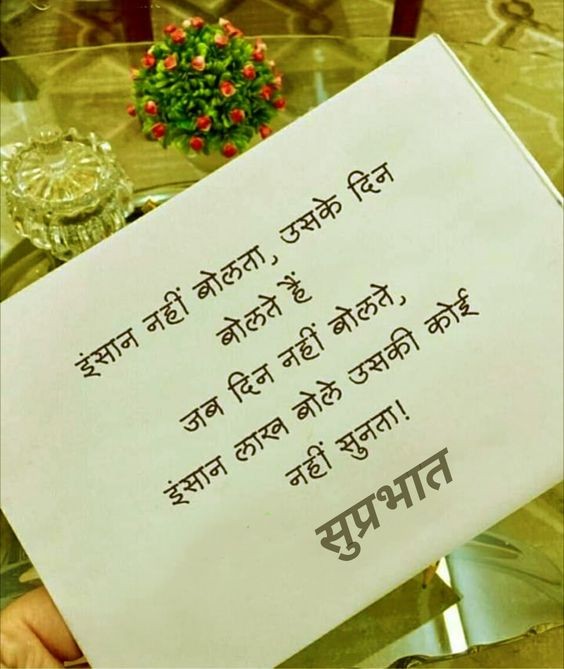 इंसान नहीं बोलता, उसके दिन
बोलते हैं
जब दिन नहीं बोलते,
इंसान लाख बोले उसकी कोई
नहीं सुनता!
सुप्रभात